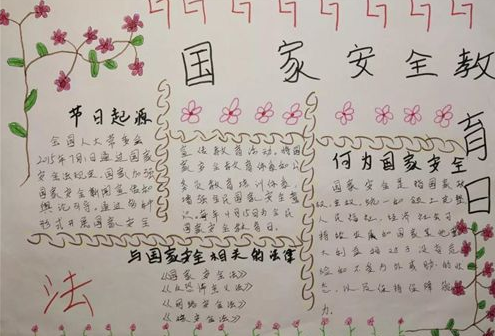 国家安全教育日
节日起源
全国人大常委会
2015年7月1日通过国家
安全法规定,国家加强
国家安全新闻宣传和
舆论引导,通过多种
形式开展国家安全
宣传教育活动,将国
家安全教育体系和公
务员教育培训体系,
增强全民国家安全意
识,每年4月15日为全民
国家安全教育日。
何为国家安全
国家安全是指国家政
权、主权、统一和领土完整、
人民福祉、经济社会可
持续发展和国家其他重
大利益相对处于没有危
险和不受内外威胁的状
态,以及保障持续安
力
与国家安全相关的法律
《国家安全法》
《反恐怖主义法》
《网络安全法》
《核安全法》
法